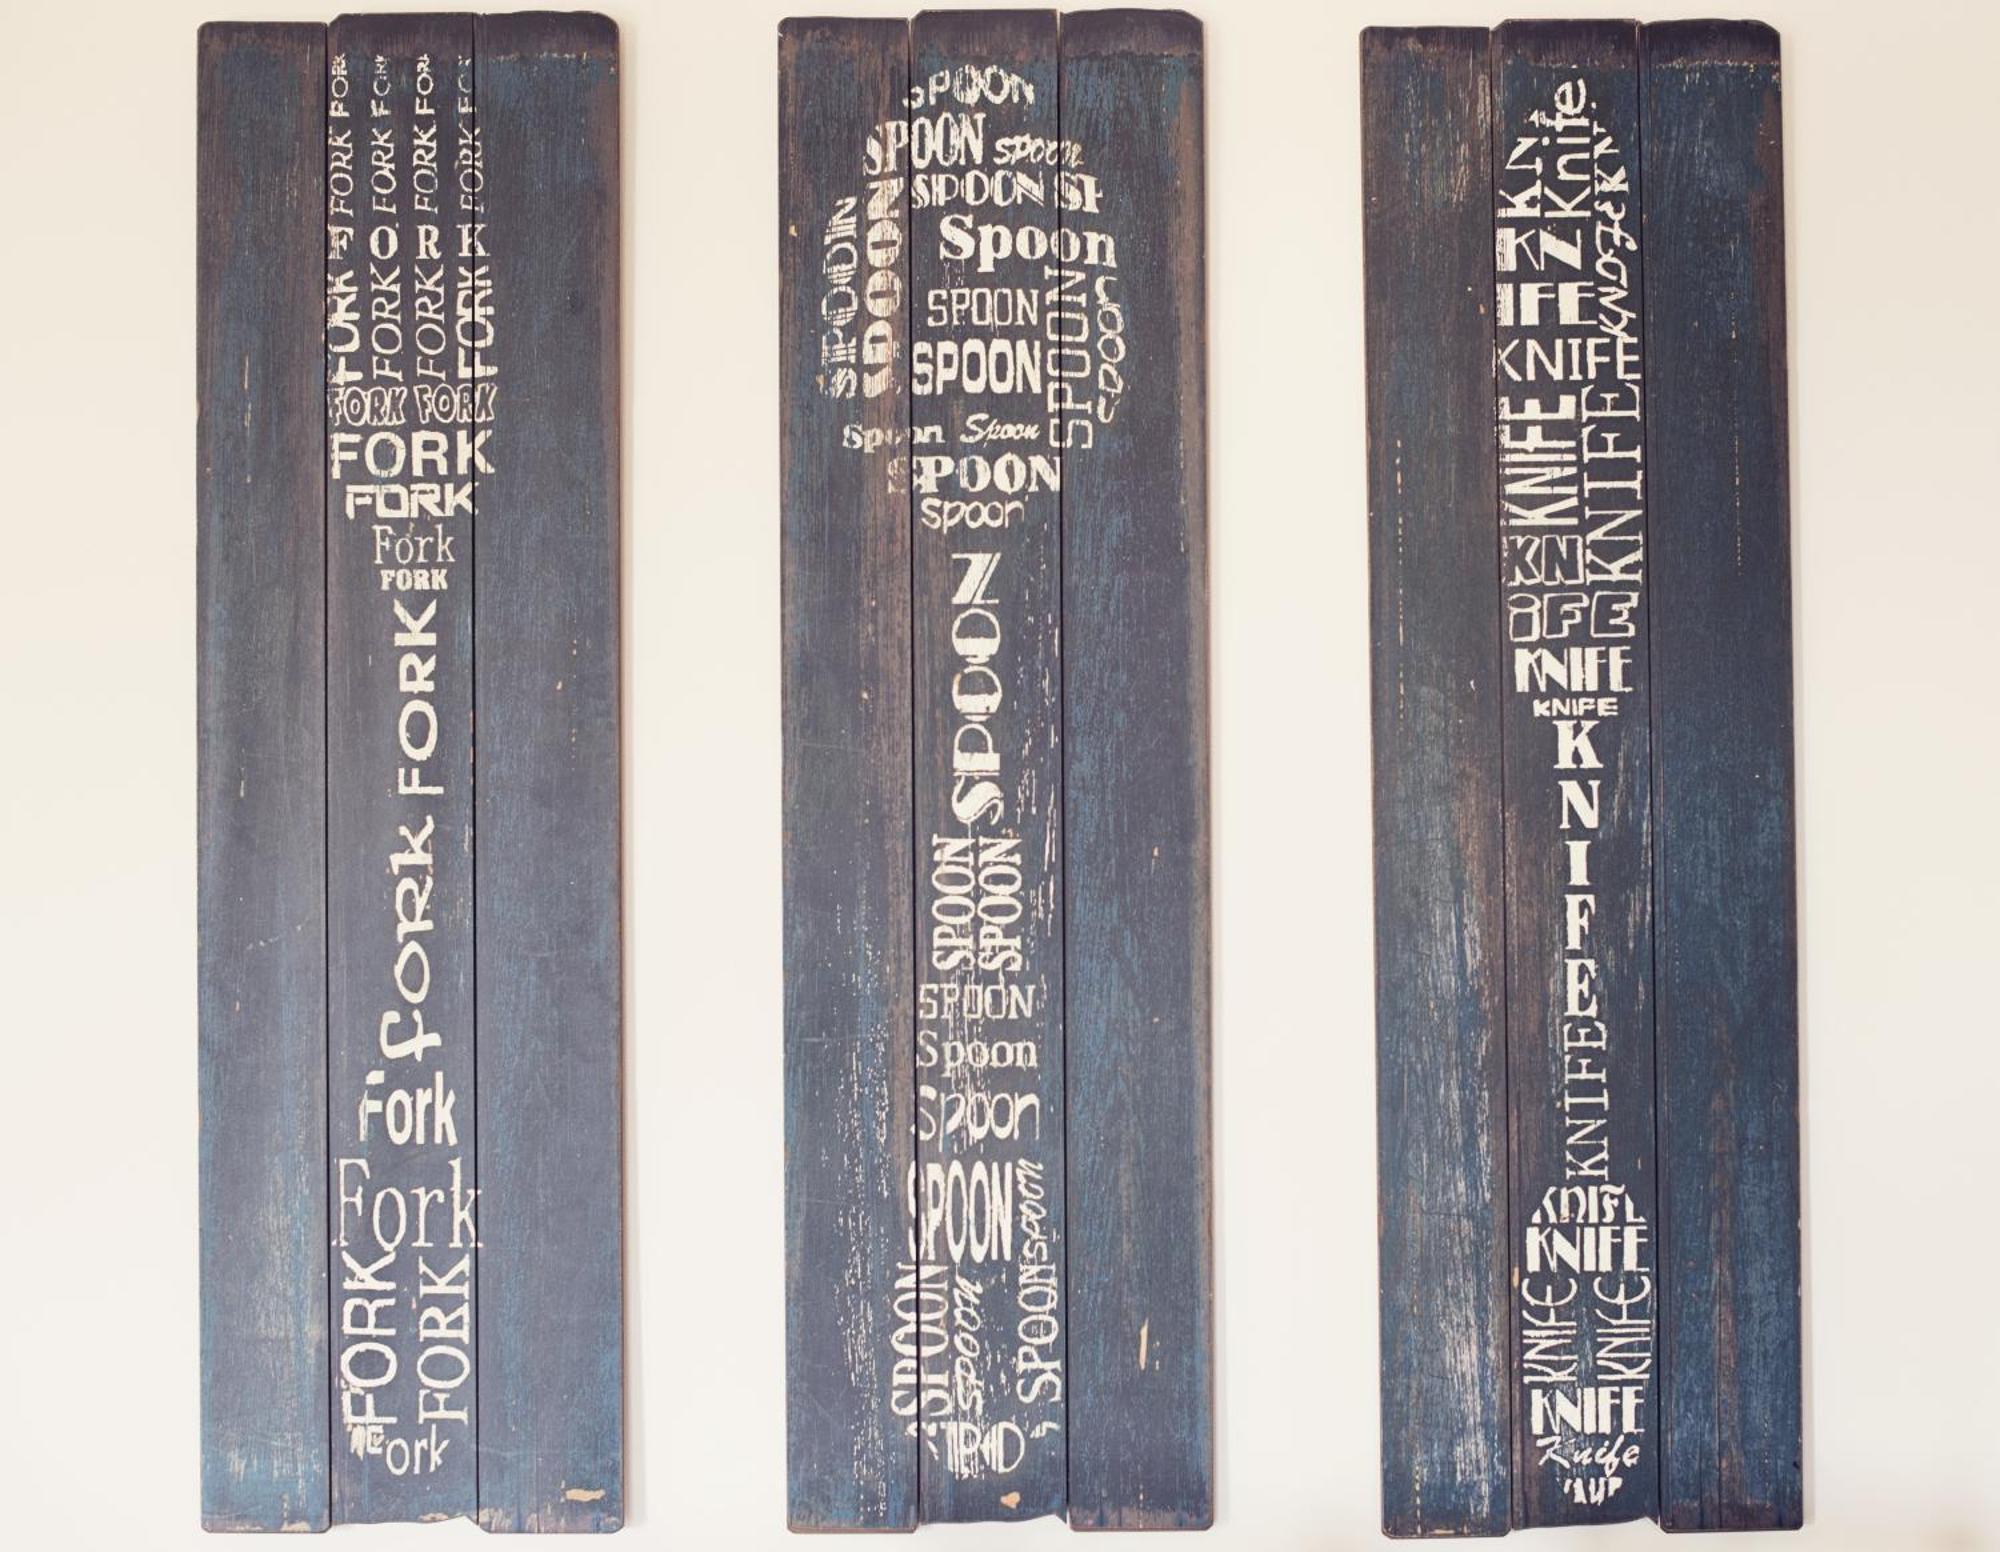 FORK FORK FORK FORK
FORK FORK FORK FORK
F O R K
FORK FORK FORK FORK
FORK FORK
FORK
FORK
Fork
FORK
FORK
fork
Fork
Fork
FORK FORK
Fork
SPOON
SPOON spoon
SPOON SP
SPOON SPOON
Spoon
SPOON
SPOON
SPOON spoon
Spoon Spoon
SPOON
spoon
SPOON
SPOON SPOON
SPOON
Spoon
Spoon
SPOON spoon
SPOON spoon SPOON
Knife
KN
KNIFE
KNIFE
KNIFE
KNIFE KNIFE
KN
iFE
KNIFE
KNIFE
K
N
I
F
E
KNIFE
KNIFE
KNIFE
KNIFE KNIFE
KNIFE
Knife